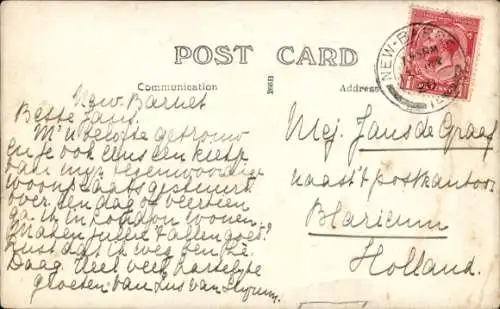 POST CARD
Communication
Address
New Barnet
Beste Jans.
M'n belofte getrouw
en je ook eens een kiekje
van mijn tegenwoordige
woonplaats gestuurd
over een dag of veertien
ga ik in London wonen.
Maken jullie 't allen goed?
Daag. Heel veel hartelijke
groeten van Lus van
Mej. Jans de Graaf
naast 't postkantoor
Blaricum
Holland.
NEW-BARNET